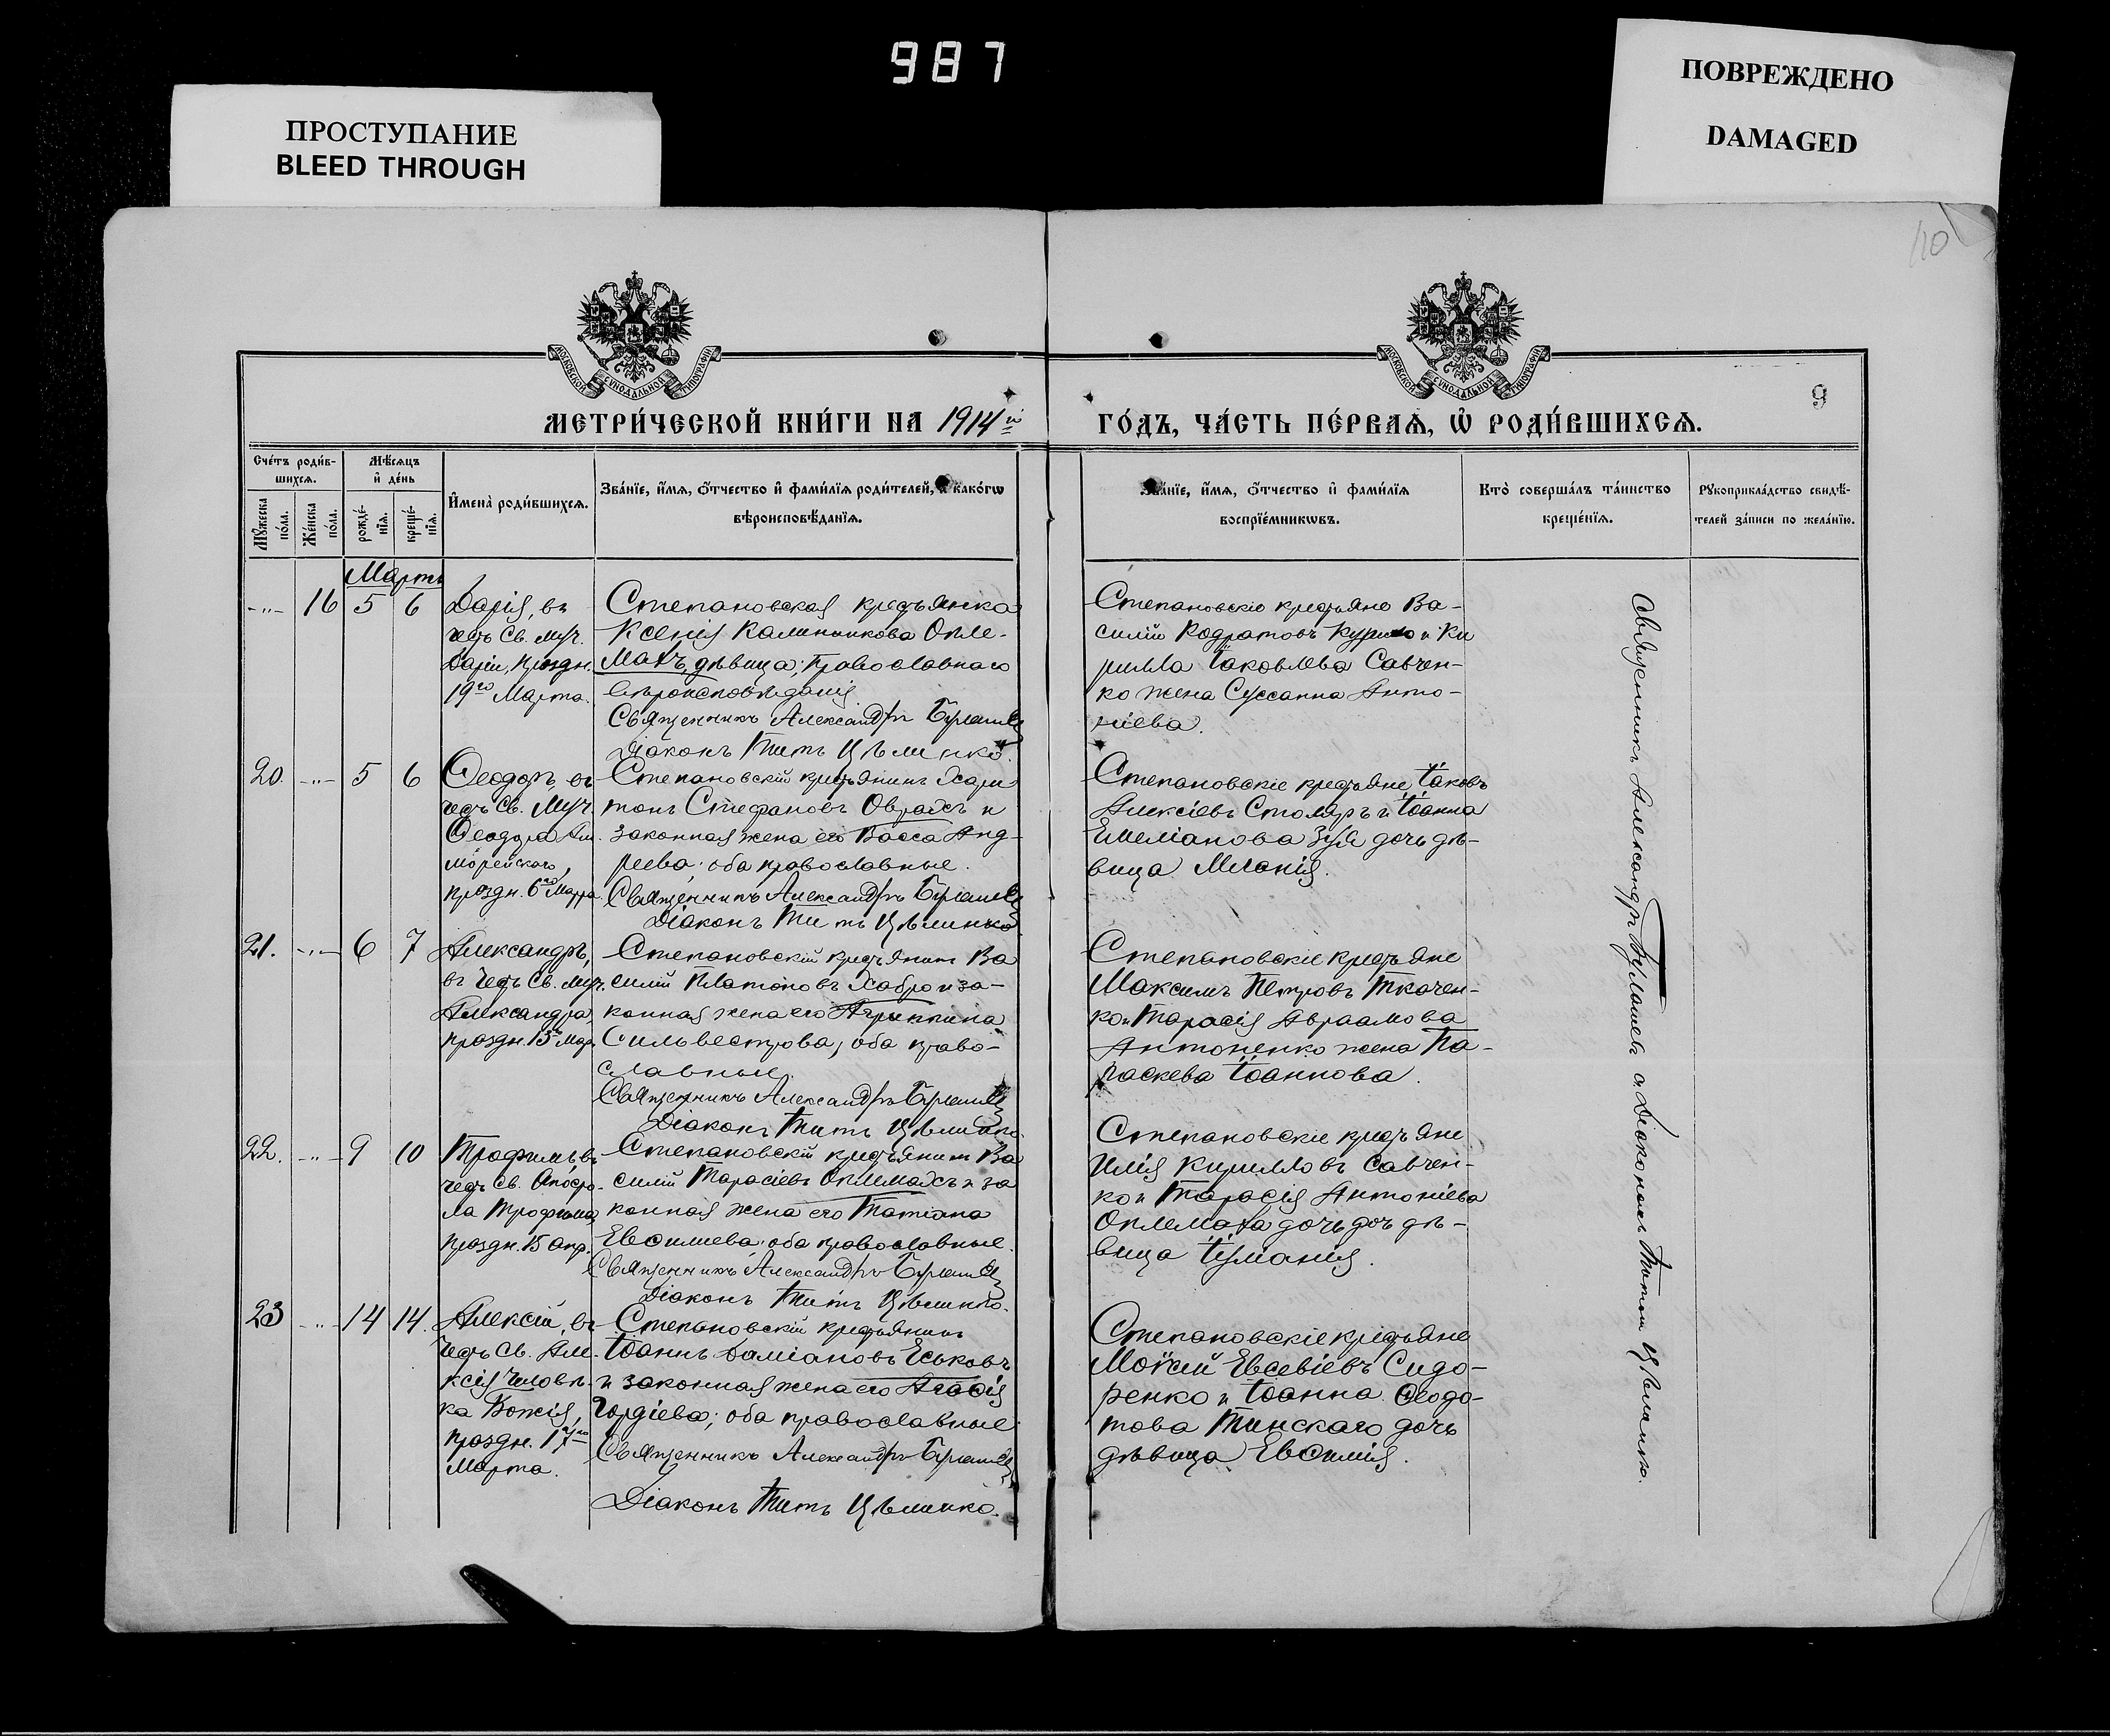 987
ПРОСТУПАНИЕ
BLEED THROUGH
ПОВРЕЖДЕНО
DAMAGED
110
9
МОСКОВСКОЙ СѴНОДАЛЬНОЙ ТИПОГРАФІИ
МОСКОВСКОЙ СѴНОДАЛЬНОЙ ТИПОГРАФІИ
МЕТРИ́ЧЕСКОЙ КНИ́ГИ НА 1914й
ГО́ДЪ, ЧА́СТЬ ПЕ́РВАѦ, Ѡ҆ РОДИ́ВШИХСѦ.
Сче́тъ роди́в-
шихсѧ.
Мѣ́сѧцъ
и҆ де́нь
Мꙋ́жеска
по́ла.
Же́нска
по́ла.
рожде́-
нїѧ.
креще́-
нїѧ.
И҆мена̀ роди́вшихсѧ.
Зва́нїе, и҆́мѧ, ѻ҆́тчество и҆ фами́лїѧ роди́телей, и҆ како́гѡ
вѣроисповѣ́данїѧ.
Зва́нїе, и҆́мѧ, ѻ҆́тчество и҆ фами́лїѧ
воспрїе́мникѡвъ.
Кто̀ соверша́лъ та́инство
креще́нїѧ.
Рꙋкоприкла́дство свидѣ́-
телей за́писи по жела́нїю.
Мартъ
-"- 16 5 6
Дарія, въ
честь Св. Муч.
Даріи, праздн.
19го Марта.
Степановская крестьянка
Ксенія Калинникова Опле-
махъ, дѣвица; православнаго
вѣроисповѣданія
Священникъ Александръ
Діаконъ Титъ Цѣлинко.
Степановскіе крестьяне Ва-
силій Кодратовъ Курило и Ки
рилла Іаковлева Савчен-
ко жена Суссанна Анто-
ніева.
20. -"- 5 6
Ѳеодоръ, въ
честь Св. Муч.
Ѳеодора Ам-
морейскаго,
праздн. 6го Марта
Степановскій крестьянинъ Хари
тонъ Стефановъ и
законная жена его Васса Анд-
реева; оба православные.
Священникъ Александръ
Діаконъ Титъ Цѣлинко
Степановскіе крестьяне, Іаковъ
Алексіевъ Столяръ и Іоанна
Емеліанова Зуя дочь дѣ-
вица Меланія.
21. -"- 6 7
Александръ,
въ честь Св. Муч.
Александра,
праздн. 15 Мар.
Степановскій крестьянинъ Ва
силій Платоновъ Хабро и за-
конная жена его Агриппина
Сильвестрова; оба право-
славные.
Священникъ Александръ
Діаконъ Титъ Цѣлинко.
Степановскіе крестьяне
Максимъ Петровъ Ткачен-
ко и Тарасія Авраамова
Антоненко жена Па-
раскева Іоаннова.
22. -"- 9 10
Трофимъ, въ
честь Св. Апосто-
ла Трофима,
праздн. 15 Апр.
Степановскій крестьянинъ Ва
силій Тарасіевъ Оплемахъ и за
конная жена его Татіана
Евѳиміева; оба православные.
Священникъ Александръ
Діаконъ Титъ Цѣлинко.
Степановскіе крестьяне
Илія Кирилловъ Савчен-
ко и Тарасія Антоніева
Оплемаха дочь доч дѣ-
вица Іуліанія.
23 -"- 14 14.
Алексій, въ
честь Св. Але-
ксія Человѣ-
ка Божія,
праздн. 17го
Марта.
Степановскій крестьянинъ
Іоаннъ Даміановъ Еськовъ
и законная жена его Агаѳія
Гордіева; оба православные
Священникъ Александръ
Діаконъ Титъ Цѣлинко.
Степановскіе крестьяне
Моѵсей Евсевіевъ Сидо-
ренко и Іоанна Ѳеодо-
това Тинскаго дочь
дѣвица Евѳимія.
Священникъ Александръ съ Діакономъ Титомъ Цѣлинко.